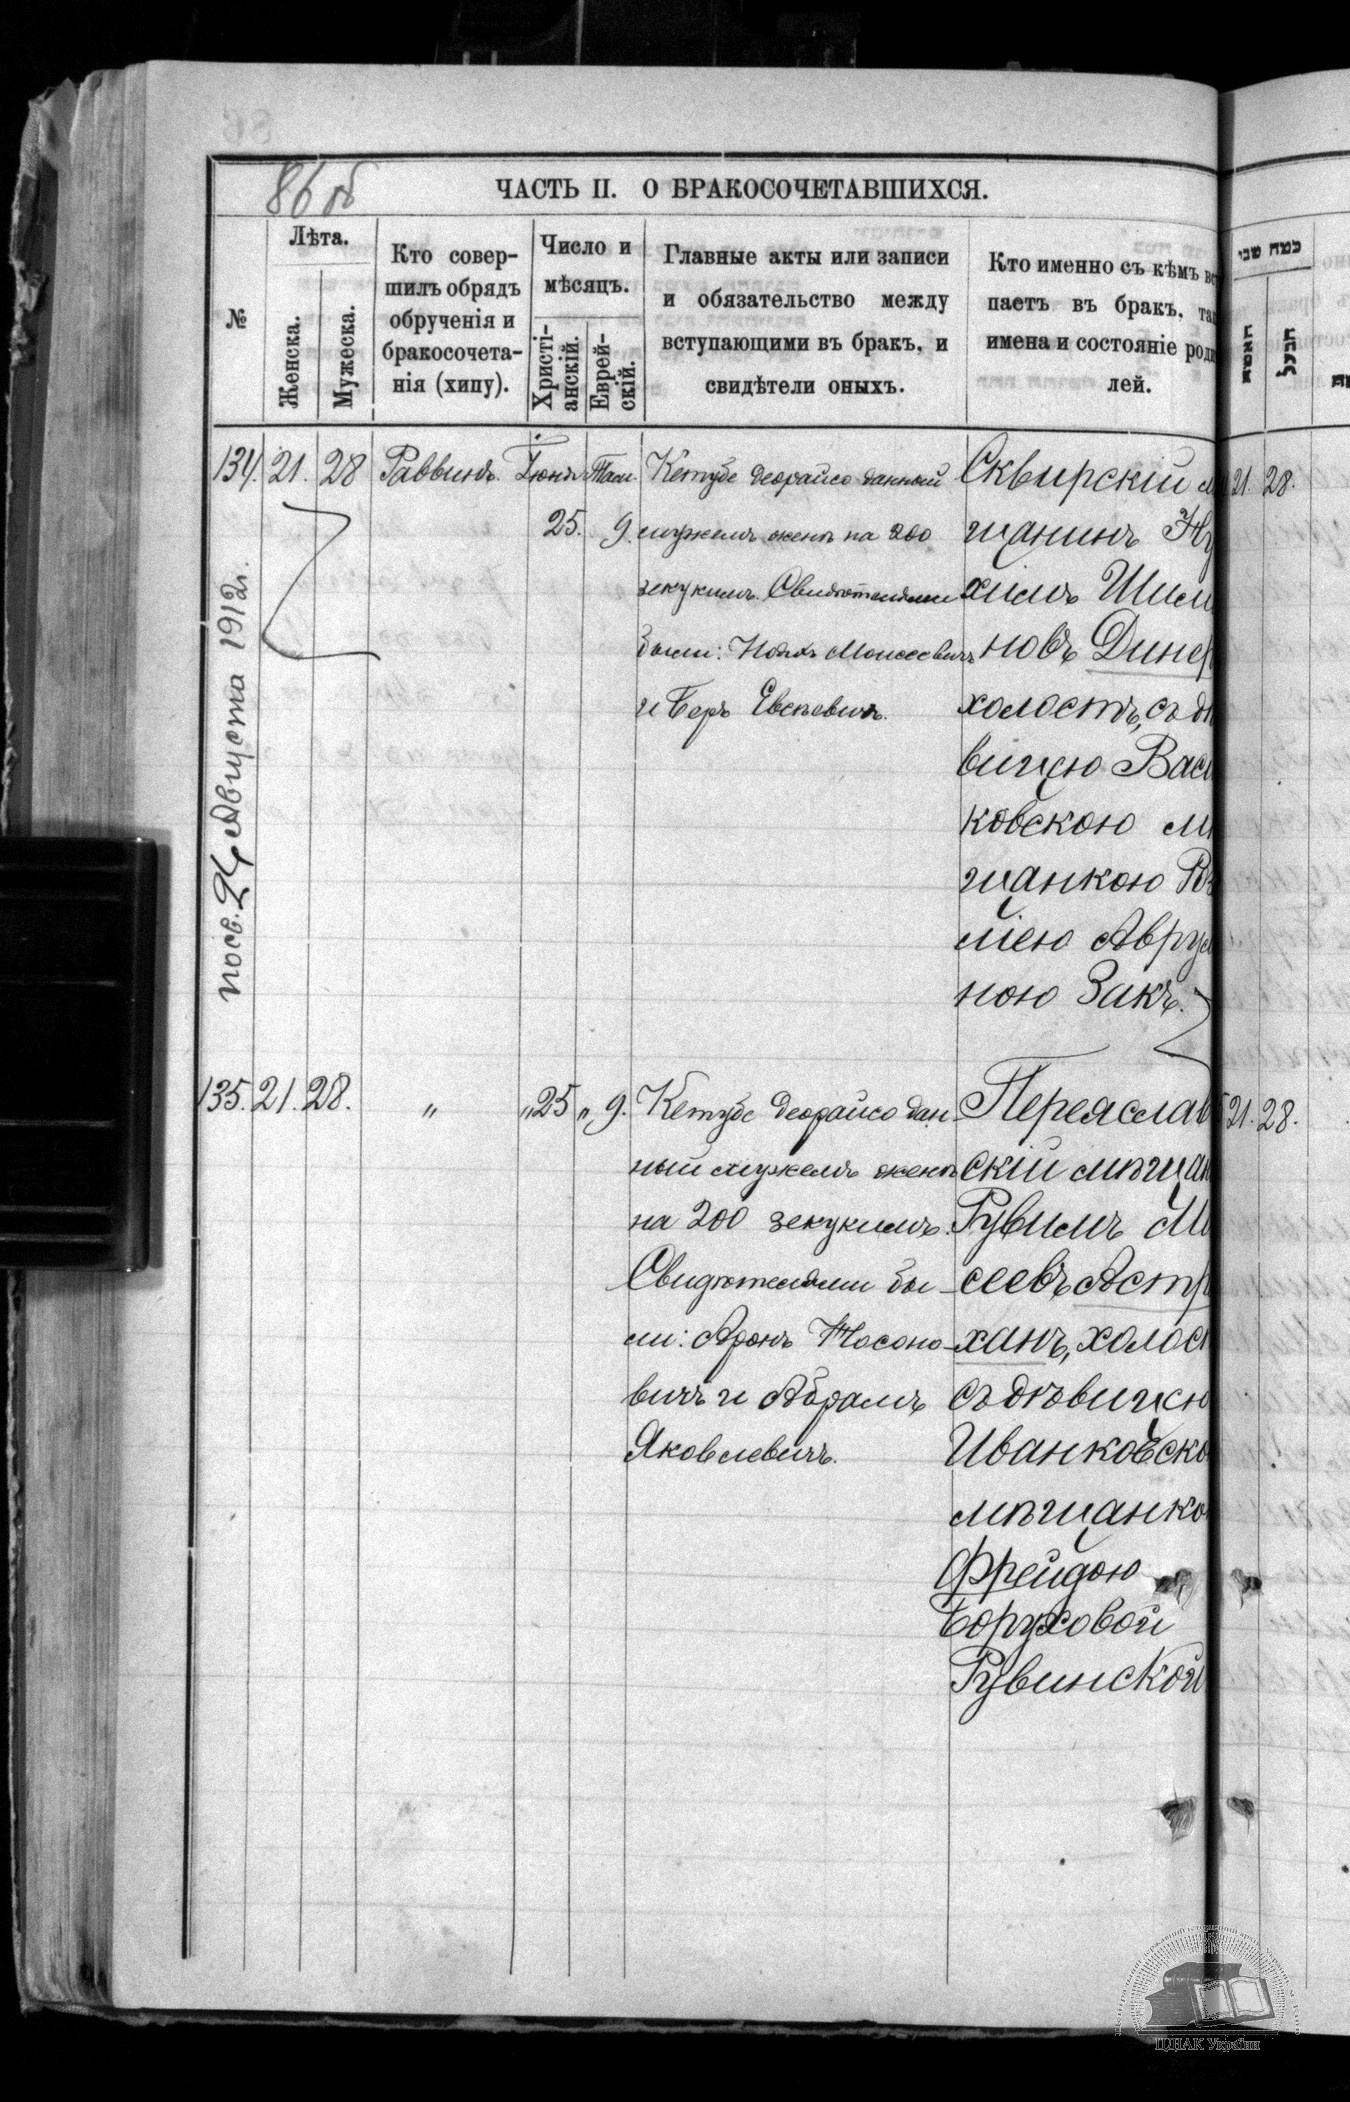 86 об
ЧАСТЬ II. О БРАКОСОЧЕТАВШИХСЯ.
№
Лѣта.
Женска.
Мужеска.
Кто совер-
шилъ обрядъ
обрученія и
бракосочета-
нія (хипу).
Число и
мѣсяцъ.
Христі-
анскій.
Еврей-
скій.
Главные акты или записи
и обязательство между
вступающими въ бракъ, и
свидѣтели оныхъ.
Кто именно съ кѣмъ вст
паетъ въ бракъ, так
имена и состояніе роди
лей.
כמה שני
האשה
הבעל
134. 21. 28 Раввинъ. Іюнь 25. Там. 9.
Кетубе деорайсо данный
мужемъ женѣ на 200
зекукимъ. Свидѣтелями
были: Нояхъ Моисеевичъ
и Беръ Евсѣевичъ.
Сквирскій м
щанинъ
химъ
новъ Динер
холостъ, съ дѣ
вицею Вас
ковскою м
щанкою
лею Аврум
ною Закъ.
21. 28.
посв. 24 Августа 1912 г.
135. 21. 28. " " 25 " 9.
Кетубе деорайсо дан-
ный мужемъ женѣ
на 200 зекукимъ.
Свидѣтелями бы-
ли: Аронъ Йосоно-
вичъ и Абрамъ
Яковлевичъ.
Переяслав
скій мѣщан
Рувимъ
сеевъ Астр
ханъ, холос
съ дѣвицею
Иванковско
мѣщанко
Фрейдою
Боруховой
Рувинской
21. 28.
ЦДІАК України